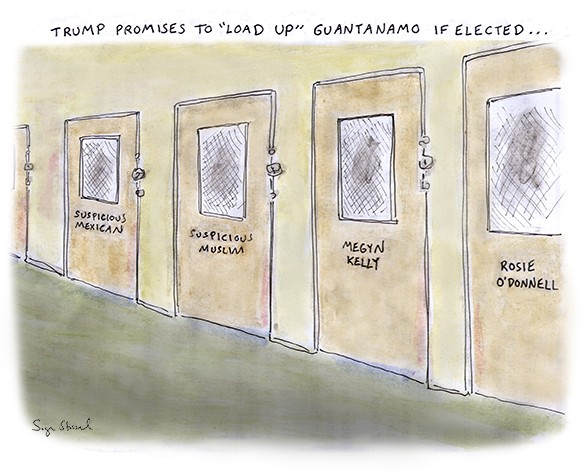 TRUMP PROMISES TO "LOAD UP" GUANTANAMO IF ELECTED...
SUSPICIOUS
MEXICAN
SUSPICIOUS
MUSLIM
MEGYN
KELLY
ROSIE
O'DONNELL